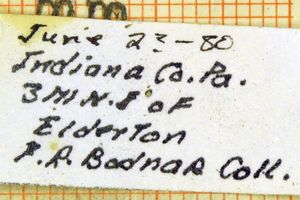 June 23-80
Indiana Co. Pa.
3 MI N.E of
Elderton
P.R. Bodnar Coll.